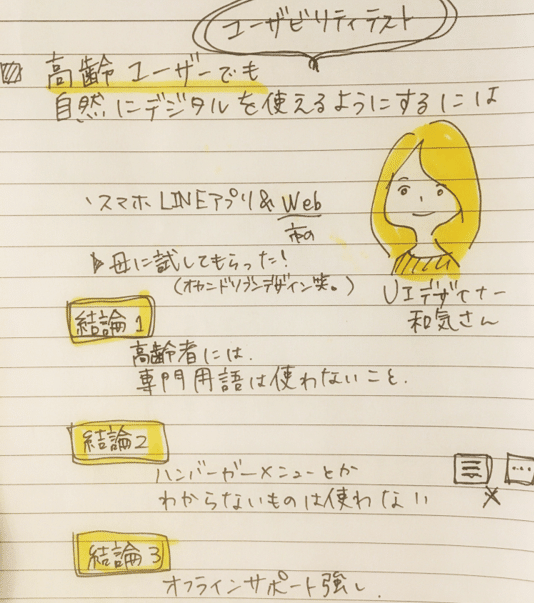 ユーザビリティテスト
高齢ユーザーでも
自然にデジタルを使えるようにするには
スマホLINEアプリ&Web
市の
母に試してもらった!
(オカンドリブンデザイン笑。)
UIデザイナー
和気さん
結論1
高齢者には、
専門用語は使わないこと、
結論2
ハンバーガーメニューとか
わからないものは使わない
結論3
オフラインサポート強し、